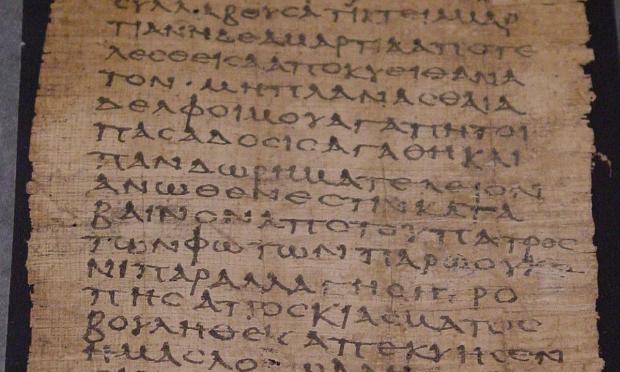 CΥΛΛΑΒΟΥCΑΤΙΚΤΕΙΑΜΑΡ
ΤΙΑΝΗΔΕΑΜΑΡΤΙΑΑΠΟΤΕ
ΛΕCΘΕΙCΑΑΠΟΚΥΕΙΘΑΝΑ
ΤΟΝ·ΜΗΠΛΑΝΑCΘΑΙΑ
ΔΕΛΦΟΙΜΟΥΑΓΑΠΗΤΟΙ
ΠΑCΑΔΟCΙCΑΓΑΘΗΚΑΙ
ΠΑΝΔΩΡΗΜΑΤΕΛΕΙΟΝ
ΑΝΩΘΕΝΕCΤΙΝΚΑΤΑ
ΒΑΙΝΟΝΑΠΟΤΟΥΠΑΤΡΟC
ΤΩΝΦΩΤΩΝΠΑΡΩΟΥΚ
ΝΙΠΑΡΑΛΛΑΓΗCΗΤΡΟ
ΠΗCΑΠΟCΚΙΑCΜΑΤΟC
ΒΟΥΛΗΘΕΙCΑΠΕΚΥΗCΕΝ
ΗΜΑCΛΟ